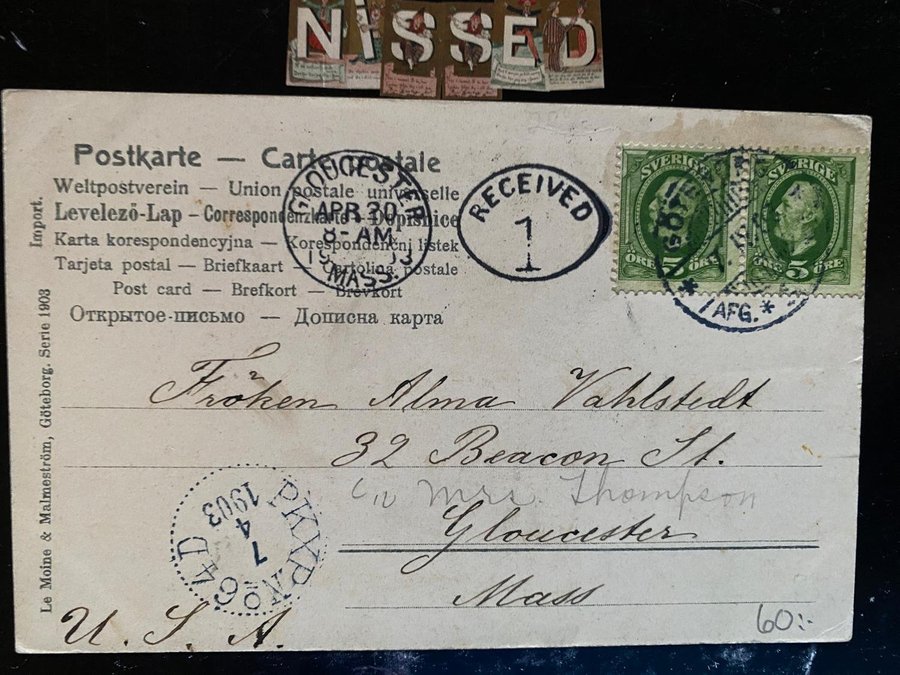 NISSED
Postkarte — Carte postale
Weltpostverein — Union postale universelle
Levelező-Lap – Correspondenzkarte – Dopisnice
Karta korespondencyjna — Korespondenční listek
Tarjeta postal — Briefkaart — Cartolina postale
Post card — Brefkort — Brevkort
Открытое-письмо — Дописна карта
GLOUCESTER
APR 30
8-AM
MASS.
RECEIVED
1
SVERIGE
ÖRE
SVERIGE
ÖRE 5 ÖRE
GÖTE
* 1 AFG. *
Fröken Alma Vahlstedt
32 Beacon St.
c/o Mrs. Thompson
Gloucester
Mass
U. S. A.
PKXP No 64 D
7
4
1903
60:-
Le Moine & Malmeström, Göteborg. Serie 1903 Import.